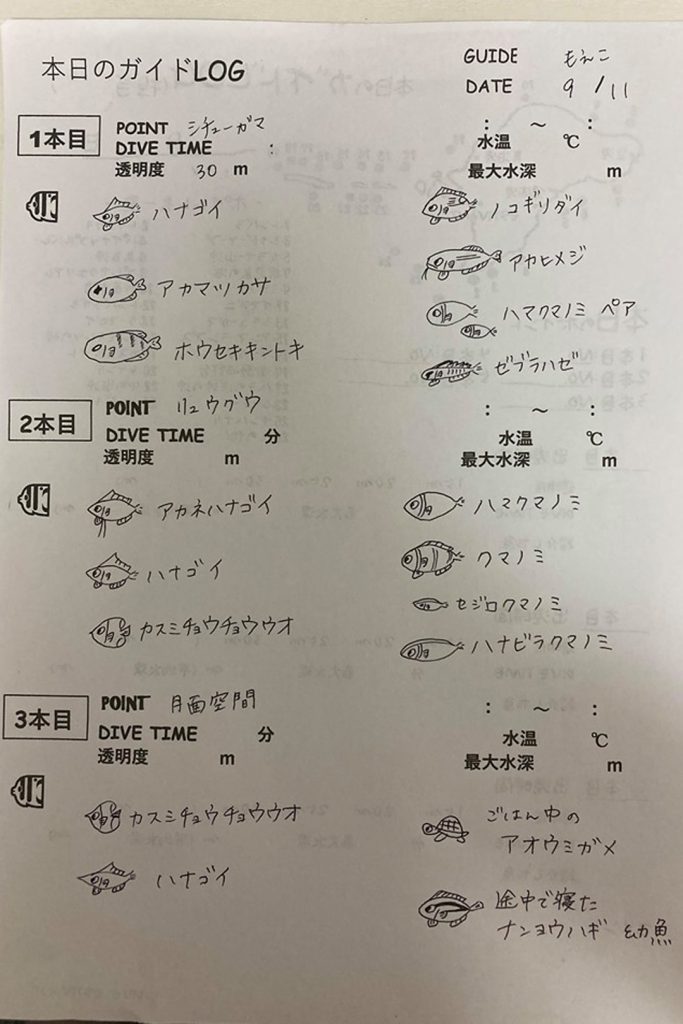 本日のガイドLOG
GUIDE もえこ
DATE 9 / 11
1本目
POINT シチューガマ
DIVE TIME :
: ～ :
水温 ℃
透明度 30 m
最大水深 m
ハナゴイ
ノコギリダイ
アカヒメジ
アカマツカサ
ハマクマノミ ペア
ホウセキキントキ
ゼブラハゼ
2本目
POINT リュウグウ
DIVE TIME 分
: ～ :
水温 ℃
透明度 m
最大水深 m
アカネハナゴイ
ハマクマノミ
ハナゴイ
クマノミ
カスミチョウチョウウオ
セジロクマノミ
ハナビラクマノミ
3本目
POINT 月面空間
DIVE TIME 分
: ～ :
水温 ℃
透明度 m
最大水深 m
カスミチョウチョウウオ
ごはん中の
アオウミガメ
ハナゴイ
途中で寝た
ナンヨウハギ 幼魚